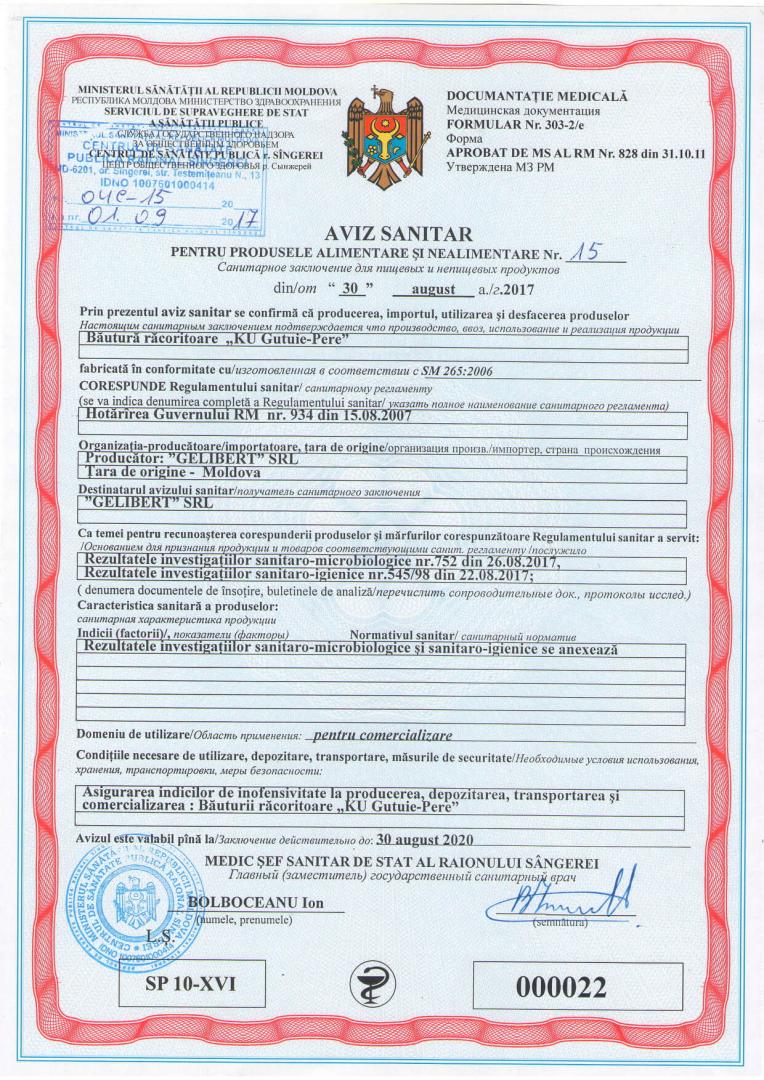 MINISTERUL SĂNĂTĂŢII AL REPUBLICII MOLDOVA
РЕСПУБЛИКА МОЛДОВА МИНИСТЕРСТВО ЗДРАВООХРАНЕНИЯ
SERVICIUL DE SUPRAVEGHERE DE STAT
A SĂNĂTĂŢII PUBLICE
СЛУЖБА ГОСУДАРСТВЕННОГО НАДЗОРА
ЗА ОБЩЕСТВЕННЫМ ЗДОРОВЬЕМ
CENTRUL DE SĂNĂTATE PUBLICĂ r. SÎNGEREI
ЦЕНТР ОБЩЕСТВЕННОГО ЗДОРОВЬЯ р. Сынжерей
MD-6201, or. Sîngerei, str. Testemiţeanu N., 13
IDNO 1007601000414
04e-15 20
01. 09 2017
DOCUMANTAŢIE MEDICALĂ
Медицинская документация
FORMULAR Nr. 303-2/e
Форма
APROBAT DE MS AL RM Nr. 828 din 31.10.11
Утверждена МЗ РМ
AVIZ SANITAR
PENTRU PRODUSELE ALIMENTARE ŞI NEALIMENTARE Nr. 15
Санитарное заключение для пищевых и непищевых продуктов
din/от “ 30 ” august a./г.2017
Prin prezentul aviz sanitar se confirmă că producerea, importul, utilizarea şi desfacerea produselor
Настоящим санитарным заключением подтверждается что производство, ввоз, использование и реализация продукции
Băutură răcoritoare „KU Gutuie-Pere”
fabricată în conformitate cu/изготовленная в соответствии с SM 265:2006
CORESPUNDE Regulamentului sanitar/ санитарному регламенту
(se va indica denumirea completă a Regulamentului sanitar/ указать полное наименование санитарного регламента)
Hotărîrea Guvernului RM nr. 934 din 15.08.2007
Organizaţia-producătoare/importatoare, ţara de origine/организация произв./импортер, страна происхождения
Producător: ”GELIBERT” SRL
Tara de origine - Moldova
Destinatarul avizului sanitar/получатель санитарного заключения
”GELIBERT” SRL
Ca temei pentru recunoaşterea corespunderii produselor şi mărfurilor corespunzătoare Regulamentului sanitar a servit:
/Основанием для признания продукции и товаров соответствующими санит. регламенту /послужило
Rezultatele investigaţiilor sanitaro-microbiologice nr.752 din 26.08.2017,
Rezultatele investigaţiilor sanitaro-igienice nr.545/98 din 22.08.2017;
( denumera documentele de însoţire, buletinele de analiză/перечислить сопроводительные док., протоколы исслед.)
Caracteristica sanitară a produselor:
санитарная характеристика продукции
Indicii (factorii)/, показатели (факторы) Normativul sanitar/ санитарный норматив
Rezultatele investigaţiilor sanitaro-microbiologice şi sanitaro-igienice se anexează
Domeniu de utilizare/Область применения: pentru comercializare
Condiţiile necesare de utilizare, depozitare, transportare, măsurile de securitate/Необходимые условия использования,
хранения, транспортировки, меры безопасности:
Asigurarea indicilor de inofensivitate la producerea, depozitarea, transportarea şi
comercializarea : Băuturii răcoritoare „KU Gutuie-Pere”
Avizul este valabil pînă la/Заключение действительно до: 30 august 2020
MEDIC ŞEF SANITAR DE STAT AL RAIONULUI SÂNGEREI
Главный (заместитель) государственный санитарный врач
BOLBOCEANU Ion
(numele, prenumele)
(semnătura)
L.Ş.
SP 10-XVI
000022